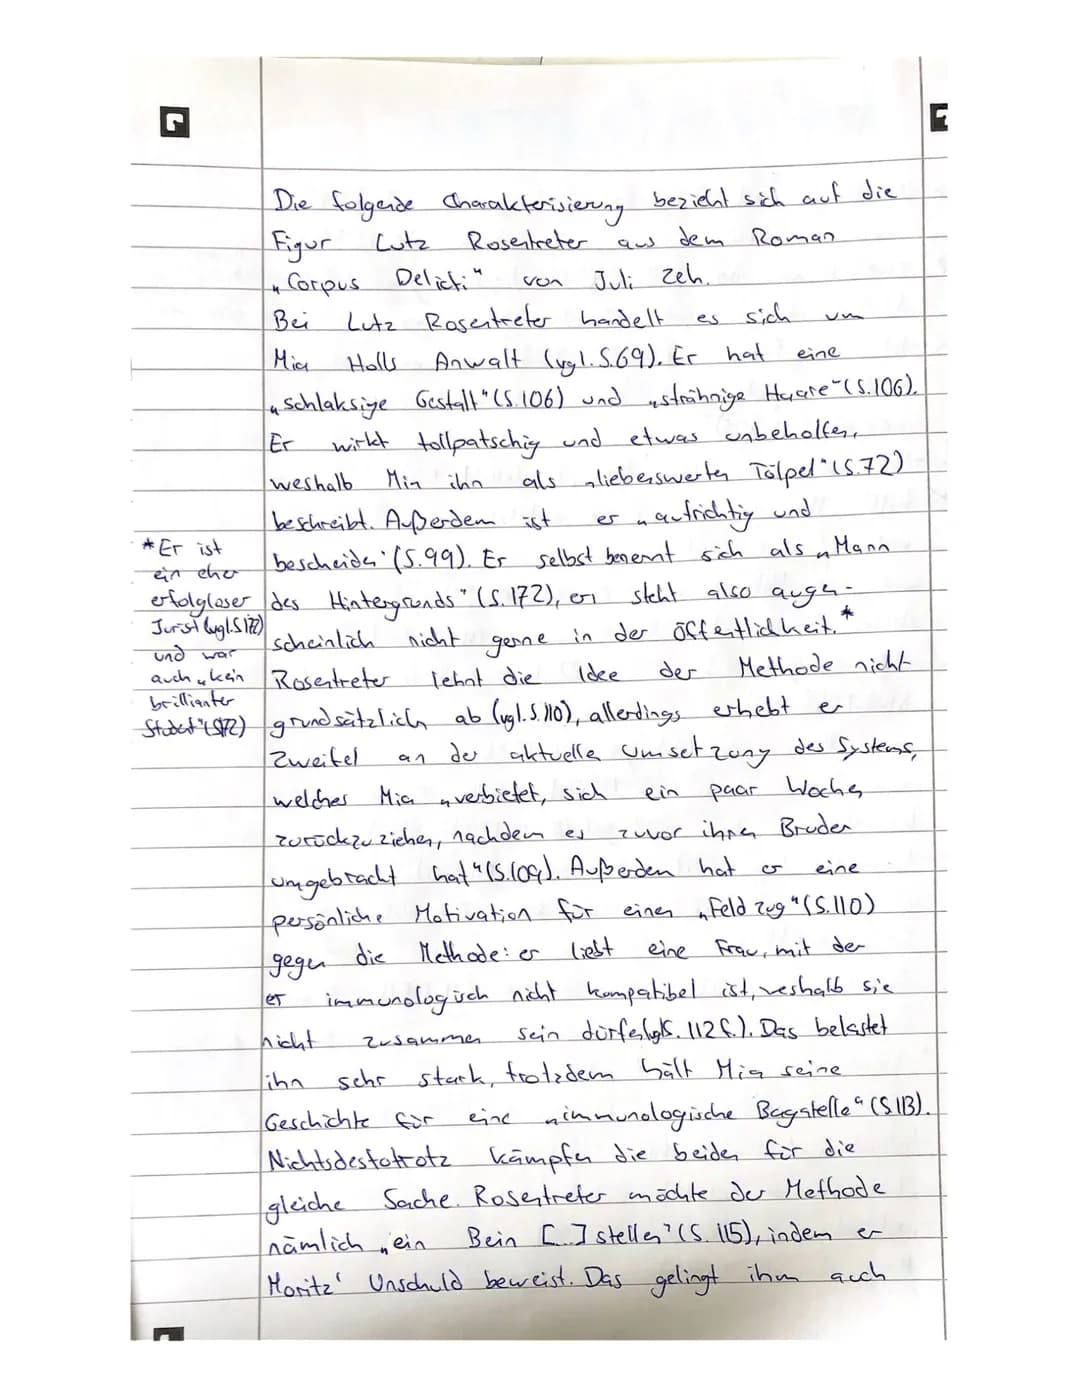 Die folgende Charakterisierung bezieht sich auf die
Figur Lutz Rosentreter aus dem Roman
„Corpus Delicti“ von Juli Zeh.
Bei Lutz Rosentreter handelt es sich um
Mia Holls Anwalt (vgl. S.69). Er hat eine
„schlaksige Gestalt“ (S.106) und „strähnige Haare“ (S.106).
Er wirkt tollpatschig und etwas unbeholfen,
weshalb Mia ihn als „liebenswerten Tölpel“ (S.72)
beschreibt. Außerdem ist er „aufrichtig und
bescheiden“ (S.99). Er selbst benennt sich als „Mann
des Hintergrunds“ (S.172), er steht also augen-
scheinlich nicht gerne in der Öffentlichkeit.*
*Er ist
ein eher
erfolgloser
Jurist (vgl. S.172)
und war
auch „kein
brillianter
Student“ (S.172)
Rosentreter lehnt die Idee der Methode nicht
grundsätzlich ab (vgl. S.110), allerdings erhebt er
Zweifel an der aktuellen Umsetzung des Systems,
welches Mia „verbietet, sich ein paar Wochen
zurückzuziehen, nachdem es zuvor ihren Bruder
umgebracht hat“ (S.109). Außerdem hat er eine
persönliche Motivation für einen „Feldzug“ (S.110)
gegen die Methode: er liebt eine Frau, mit der
er immunologisch nicht kompatibel ist, weshalb sie
nicht zusammen sein dürfen (vgl. S.112 f.). Das belastet
ihn sehr stark, trotzdem hält Mia seine
Geschichte für eine „immunologische Bagatelle“ (S.113).
Nichtsdestotrotz kämpfen die beiden für die
gleiche Sache. Rosentreter möchte der Methode
nämlich „ein Bein [..] stellen“ (S. 115), indem er
Moritz' Unschuld beweist. Das gelingt ihm auch